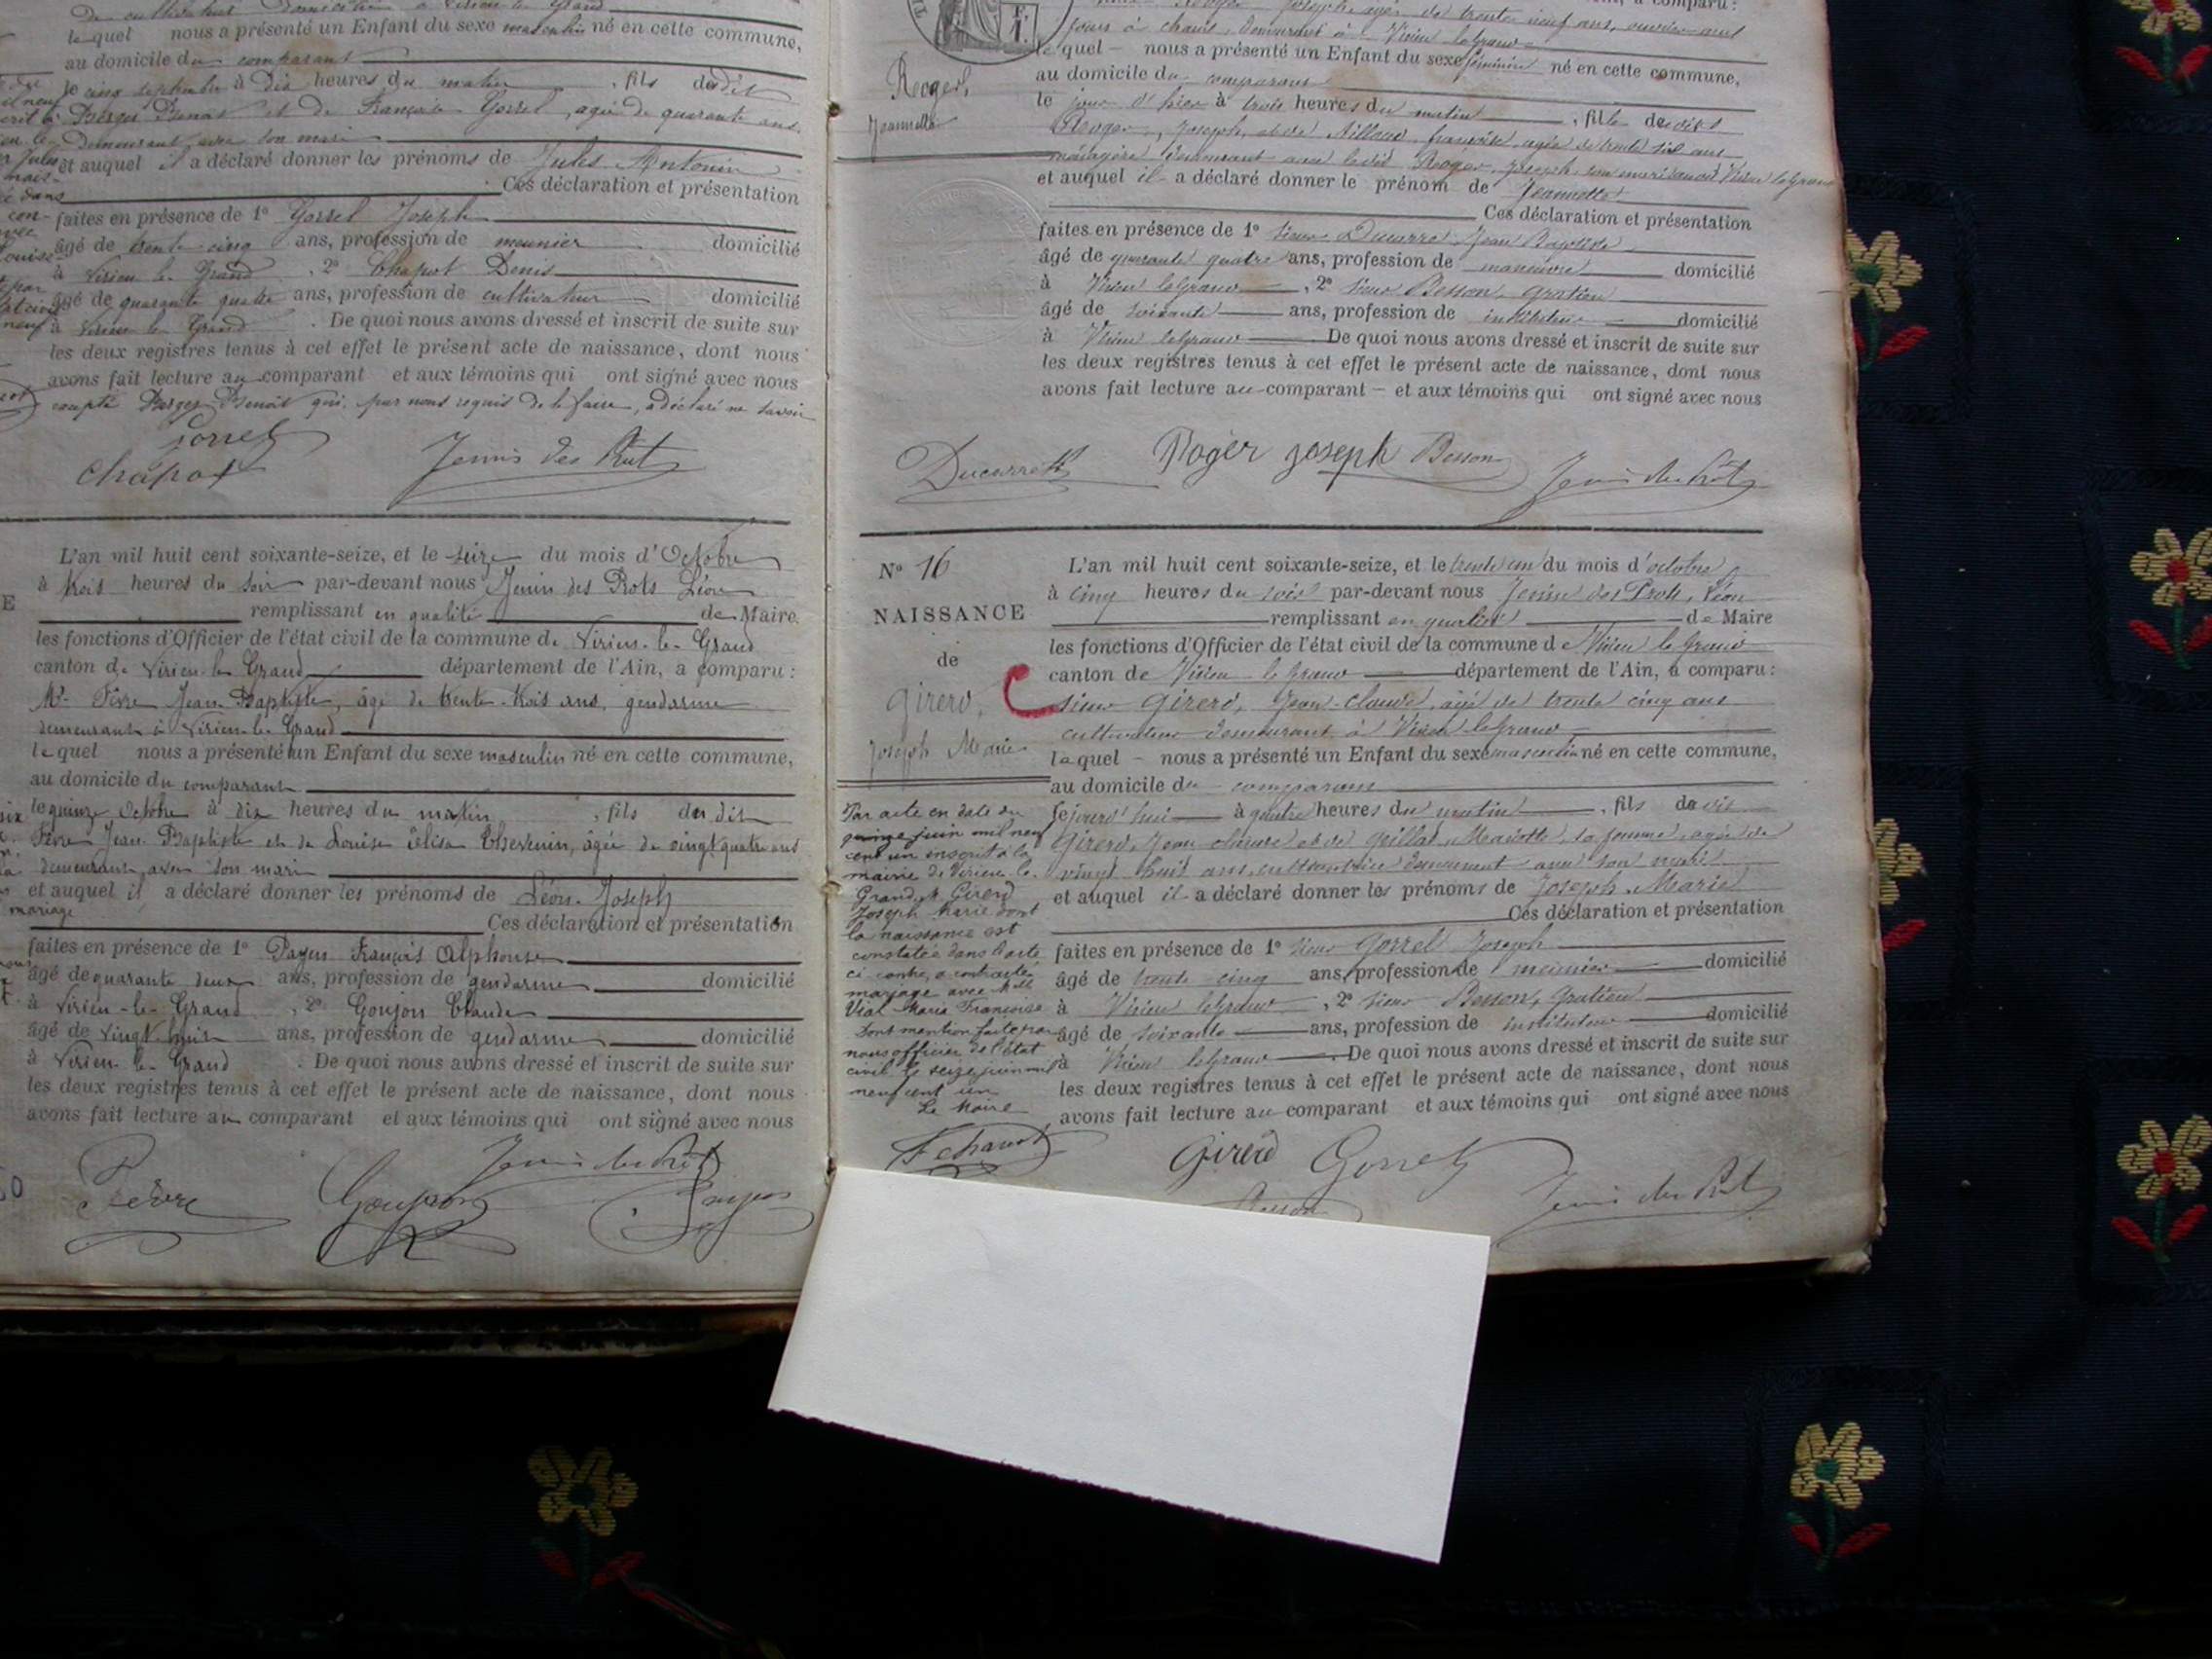 lequel nous a présenté un Enfant du sexe masculin né en cette commune,
au domicile du comparant
le cinq septembre à dix heures du matin, fils du dit
Benoit et de Gorrel, agée de quarante ans
demeurant avec son mari
et auquel il a déclaré donner les prénoms de Jules Antonin
Ces déclaration et présentation
faites en présence de 1° Gorrel Joseph
âgé de trente cinq ans, profession de meunier domicilié
à Virieu le Grand, 2° Chapot Denis
âgé de quarante quatre ans, profession de cultivateur domicilié
à Virieu le Grand. De quoi nous avons dressé et inscrit de suite sur
les deux registres tenus à cet effet le présent acte de naissance, dont nous
avons fait lecture au comparant et aux témoins qui ont signé avec nous
Benoit qui, par nous requis de le faire, a déclaré ne savoir
Gorrel
Chapot
L'an mil huit cent soixante-seize, et le seize du mois d'Octobre
à trois heures du soir par-devant nous Jenin des Prots Léon
remplissant en qualité de Maire
les fonctions d'Officier de l'état civil de la commune de Virieu-le-Grand
canton de Virieu-le-Grand département de l'Ain, a comparu :
Mr Fèvre Jean-Baptiste, âgé de trente-trois ans, gendarme
demeurant à Virieu-le-Grand
lequel nous a présenté un Enfant du sexe masculin né en cette commune,
au domicile du comparant
le quinze Octobre à dix heures du matin, fils du dit
Fèvre Jean-Baptiste et de Louise Elisa Thevenin, âgée de vingt quatre ans
demeurant avec son mari
et auquel il a déclaré donner les prénoms de Léon-Joseph
Ces déclaration et présentation
faites en présence de 1° François Alphonse
âgé de quarante deux ans, profession de gendarme domicilié
à Virieu-le-Grand, 2° Goujon Claude
âgé de vingt huit ans, profession de gendarme domicilié
à Virieu-le-Grand. De quoi nous avons dressé et inscrit de suite sur
les deux registres tenus à cet effet le présent acte de naissance, dont nous
avons fait lecture au comparant et aux témoins qui ont signé avec nous
Fèvre Goujon
Roger
Jeannette
jours à chaud, demeurant à Virieu le grand
lequel nous a présenté un Enfant du sexe féminin né en cette commune,
au domicile du comparant
le jour d'hier à trois heures du matin, fille du dit
Roger, Joseph, et de françoise agée de trente six ans
ménagère demeurant avec le dit Roger, Joseph, son mari Virieu le Grand
et auquel il a déclaré donner le prénom de Jeannette
Ces déclaration et présentation
faites en présence de 1° sieur Ducarre Jean Baptiste
âgé de quarante quatre ans, profession de manœuvre domicilié
à Virieu le grand, 2° sieur Besson, Gratien
âgé de soixante ans, profession de instituteur domicilié
à Virieu le grand De quoi nous avons dressé et inscrit de suite sur
les deux registres tenus à cet effet le présent acte de naissance, dont nous
avons fait lecture au comparant et aux témoins qui ont signé avec nous
Roger joseph Besson
N° 16
NAISSANCE
de
Girerd,
Joseph Marie
L'an mil huit cent soixante-seize, et le trente un du mois d'octobre
à cinq heures du soir par-devant nous Jenin des Prots, Léon
remplissant en qualité de Maire
les fonctions d'Officier de l'état civil de la commune de Virieu le grand
canton de Virieu le grand département de l'Ain, a comparu :
sieur Girerd, Jean-claude, agé de trente cinq ans
cultivateur demeurant à Virieu le grand
lequel nous a présenté un Enfant du sexe masculin né en cette commune,
au domicile du comparant
cejourd'hui à quatre heures du matin, fils du dit
Girerd, Jean claude et de sa femme, agée de
vingt huit ans, cultivatrice demeurant avec son mari
et auquel il a déclaré donner les prénoms de Joseph Marie
Ces déclaration et présentation
faites en présence de 1° sieur Gorrel Joseph
âgé de trente cinq ans, profession de meunier domicilié
à Virieu le grand, 2° sieur Besson, Gratien
âgé de soixante ans, profession de instituteur domicilié
à Virieu le grand De quoi nous avons dressé et inscrit de suite sur
les deux registres tenus à cet effet le présent acte de naissance, dont nous
avons fait lecture au comparant et aux témoins qui ont signé avec nous
Par acte en date du
quinze juin mil neuf
cent un inscrit à la
mairie de Virieu-le-
Grand, Mr Girerd
Joseph Marie dont
la naissance est
constatée dans l'acte
ci-contre, a contracté
mariage avec Melle
Vial Maria Françoise
Dont mention faite par
nous officier de l'état
civil le seize juin mil
neuf cent un
Le Maire
Girerd Gorrel
Besson